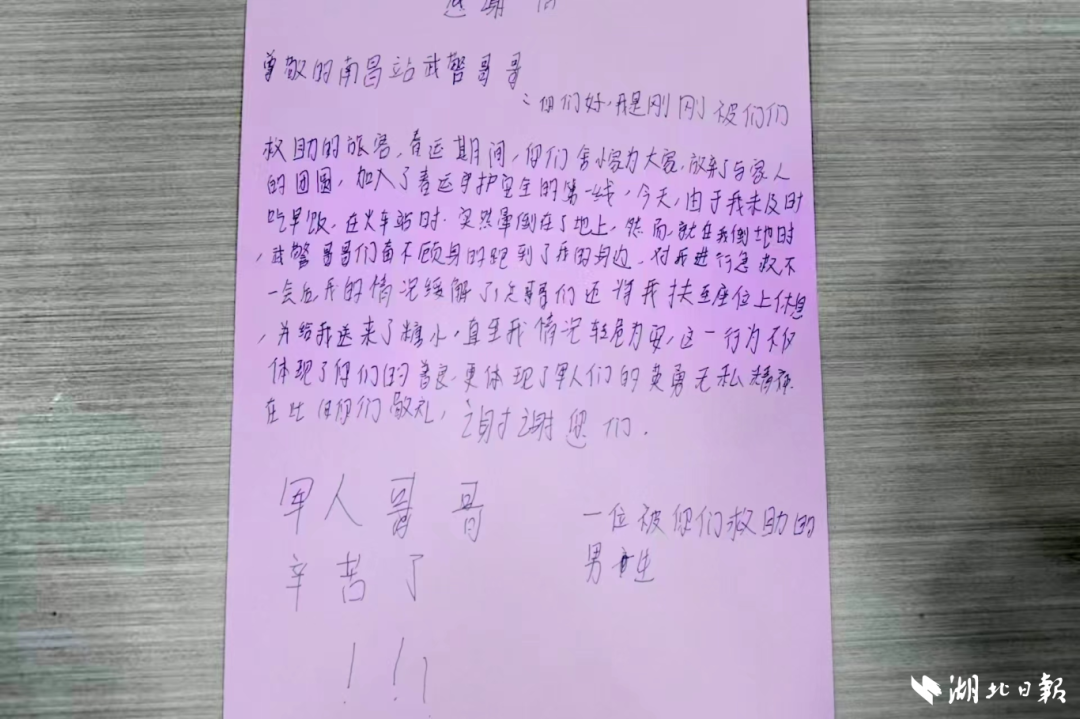 感谢信
尊敬的南昌站武警哥哥
:你们好,我是刚刚被你们
救助的旅客,春运期间,你们舍小家为大家,放弃了与家人
的团圆,加入了春运守护安全的第一线,今天,由于我未及时
吃早饭,在火车站时.突然晕倒在了地上,然而,就在我倒地时
,武警哥哥们奋不顾身的跑到了我的身边,对我进行急救不
一会后,我的情况缓解了,哥哥们还将我扶至座位上休息
,并给我送来了糖水,直至我情况转危为安,这一行为不仅
体现了你们的善良.更体现了军人们的英勇无私精神.
在此 你们敬礼,谢谢您们.
军人哥哥
辛苦了
!!!
一位被你们救助的
男生
湖北日報